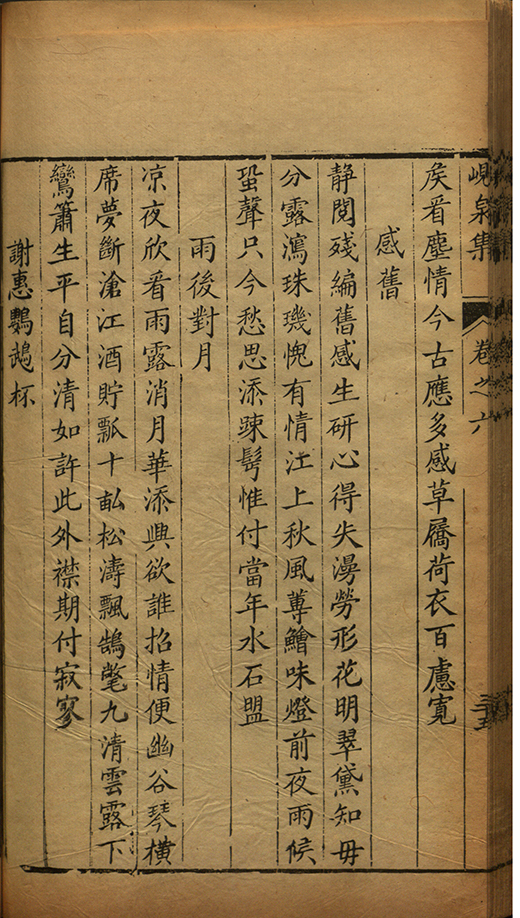 峴泉集 卷之六
矦看塵情今古應多感草屩荷衣百慮寛
感舊
静閱殘編舊感生研心得失漫勞形花明翠黛知毋
分露瀉珠璣愧有情江上秋風蓴鱠味燈前夜雨候
蛩聲只今愁思添疎髩惟付當年水石盟
雨後對月
凉夜欣看雨露消月華添興欲誰招情便幽谷琴横
席夢斷滄江酒貯瓢十畆松濤飄鵠氅九清雲露下
鸞簫生平自分清如許此外襟期付寂寥
謝惠鸚鵡杯